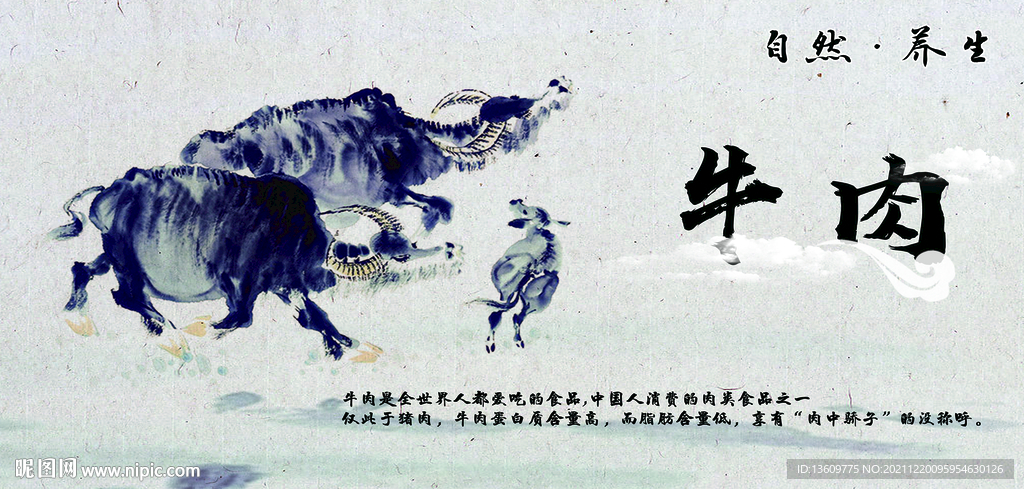 自然·养生
牛肉
牛肉是全世界人都爱吃的食品,中国人消费的肉类食品之一
仅此于猪肉，牛肉蛋白质含量高，而脂肪含量低，享有“肉中骄子”的没称呼。
昵图网 www.nipic.com
ID:13609775 NO:20211220095954630126